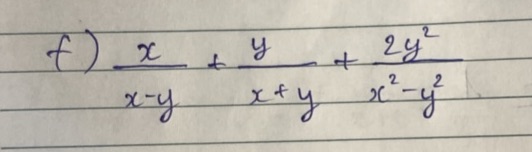 f) x/(x-y) + y/(x+y) + 2y²/(x²-y²)